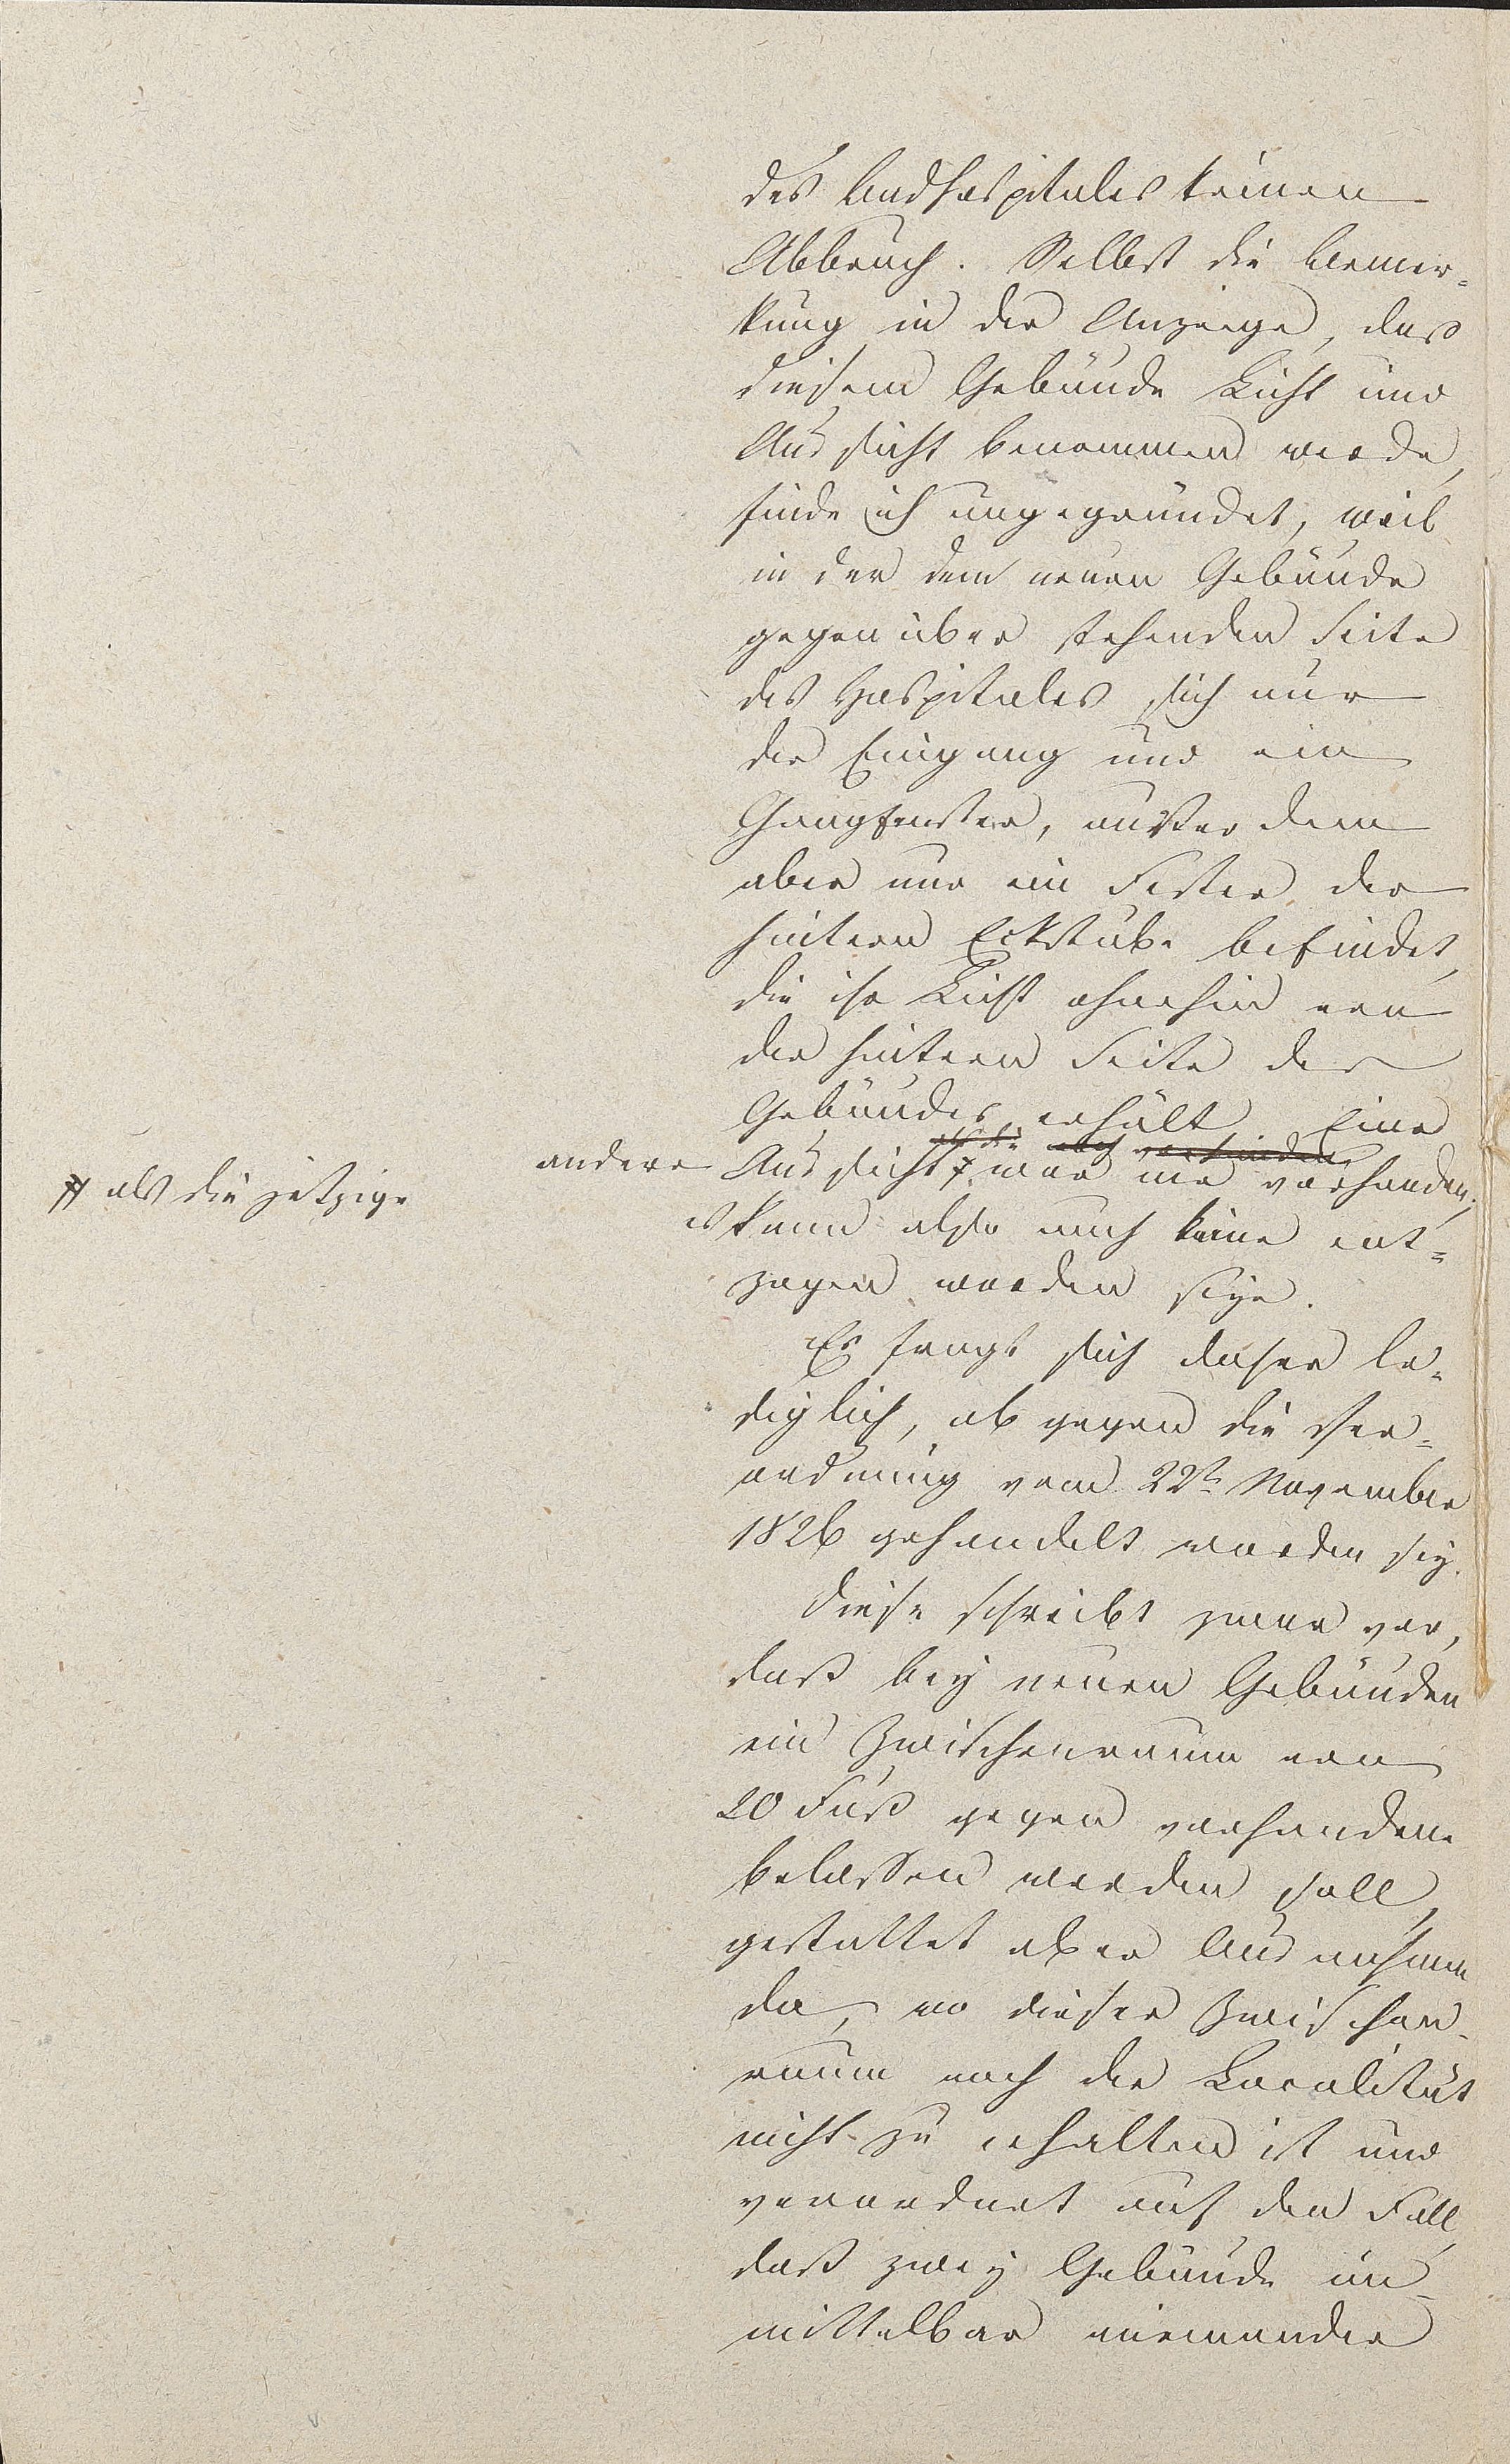 des Landhospitales keinen
Abbruch. Selbst die Bemer-
kung in der Anzeige, daß
diesem Gebäude Licht und
Aussicht benommen werde,
finde ich ungegründet, weil
in der dem neuen Gebäude
gegenüber stehenden Seite
des Hospitales sich nur
der Eingang und ein
Gangfenster, außer dem
aber nur ein Fester der
hintern Eckstube befindet,
die ihr Licht ohnehin von
der hintern Seite des
Gebäudes erhält. Eine
als die
andere Aussicht ⌗ war nie vorhanden;
⌗ als die jetzige
es kann also auch keine ent-
zogen worden seye.
Es fragt sich daher le-
diglich, ob gegen die Ver-
ordnung vom 22t. November
1826 gehandelt worden sey.
Diese schreibt zwar vor,
daß bey neuen Gebäuden
ein Zwischenraum von
20 Fuß gegen vorhandene
belassen werden soll,
gestattet aber Ausnahmen
da, wo dieser Zwischen-
raum nach der Localität
nicht zu erhalten ist und
verordnet auf den Fall,
daß zwey Gebäude un-
mittelbar aneinander